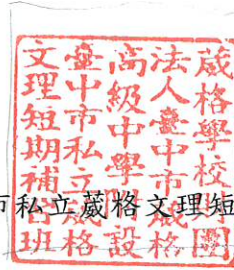 葳格學校財團
法人臺中市葳格
高級中學附設
臺中市私立葳格
文理短期補習班
市私立葳格文理短